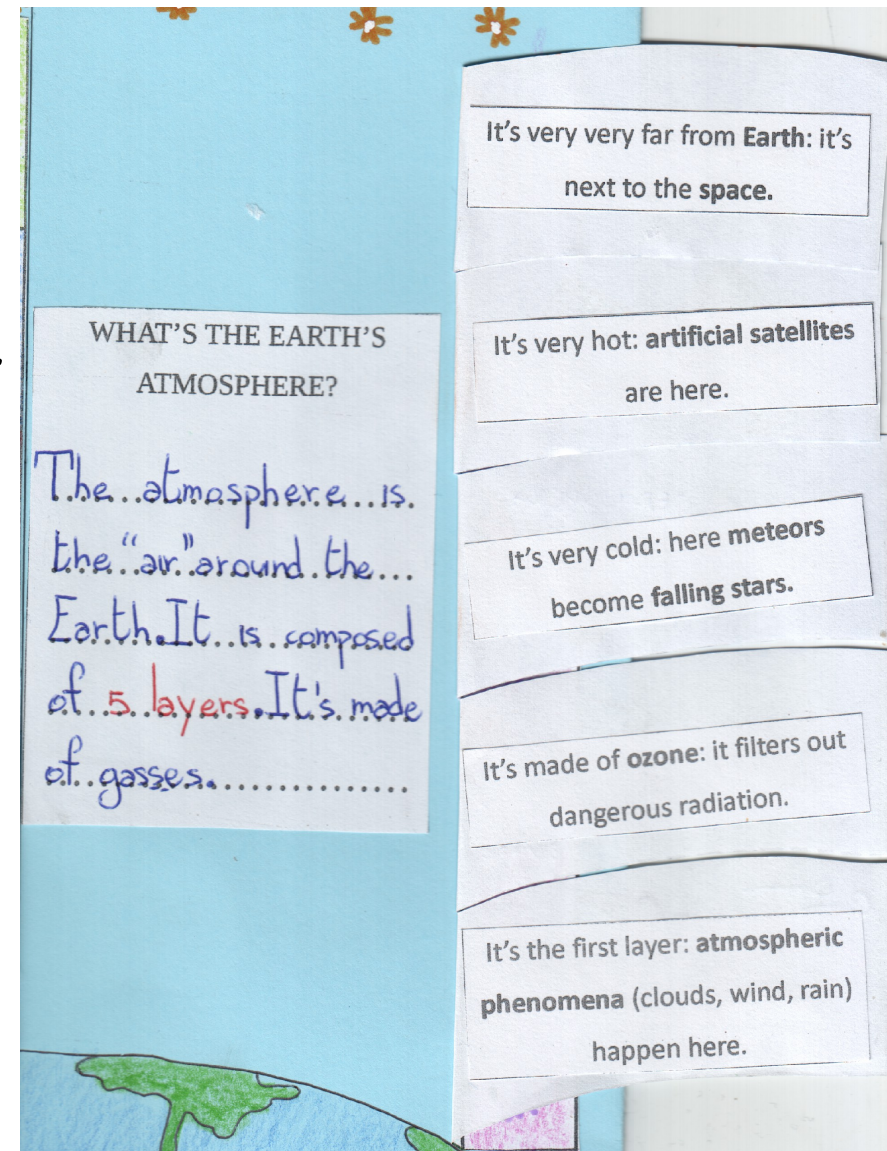 WHAT'S THE EARTH'S
ATMOSPHERE?
The atmosphere is
the "air" around the
Earth. It is composed
of 5 layers. It's made
of gasses.
It's very very far from Earth: it's
next to the space.
It's very hot: artificial satellites
are here.
It's very cold: here meteors
become falling stars.
It's made of ozone: it filters out
dangerous radiation.
It's the first layer: atmospheric
phenomena (clouds, wind, rain)
happen here.